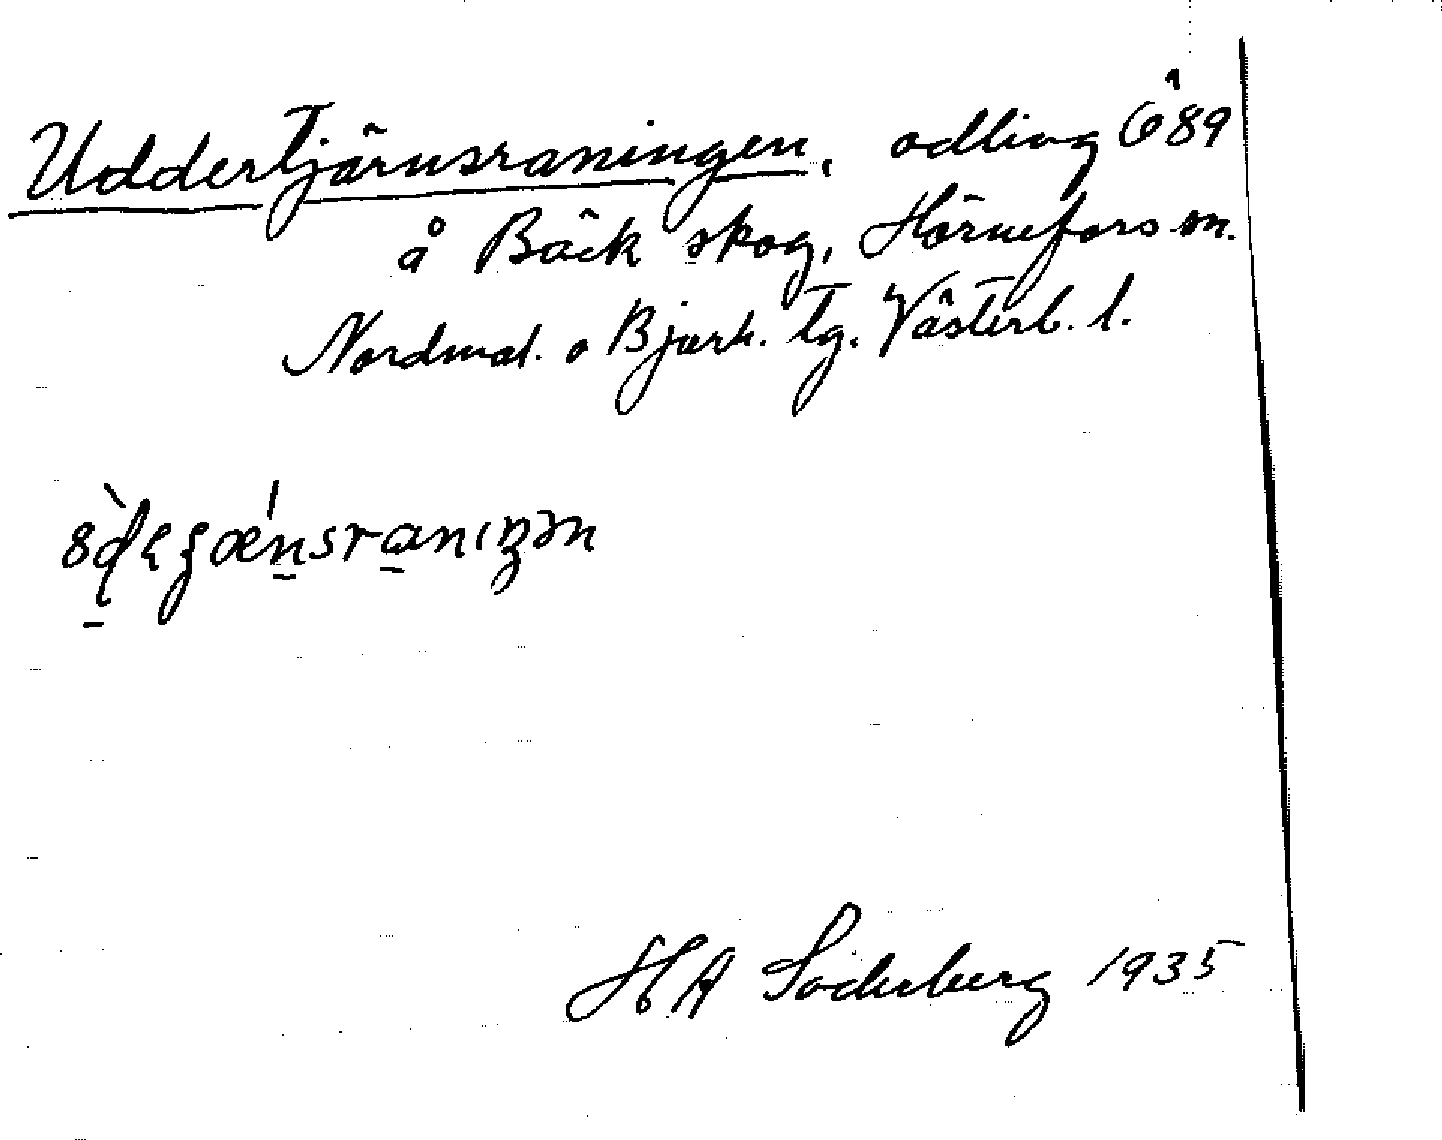 Uddertjärnsraningen, odling 689
å Bäck skog, Hörnefors sn.
Nordmal. o Bjurh. tg. Västerb. l.
H A Söderberg 1935